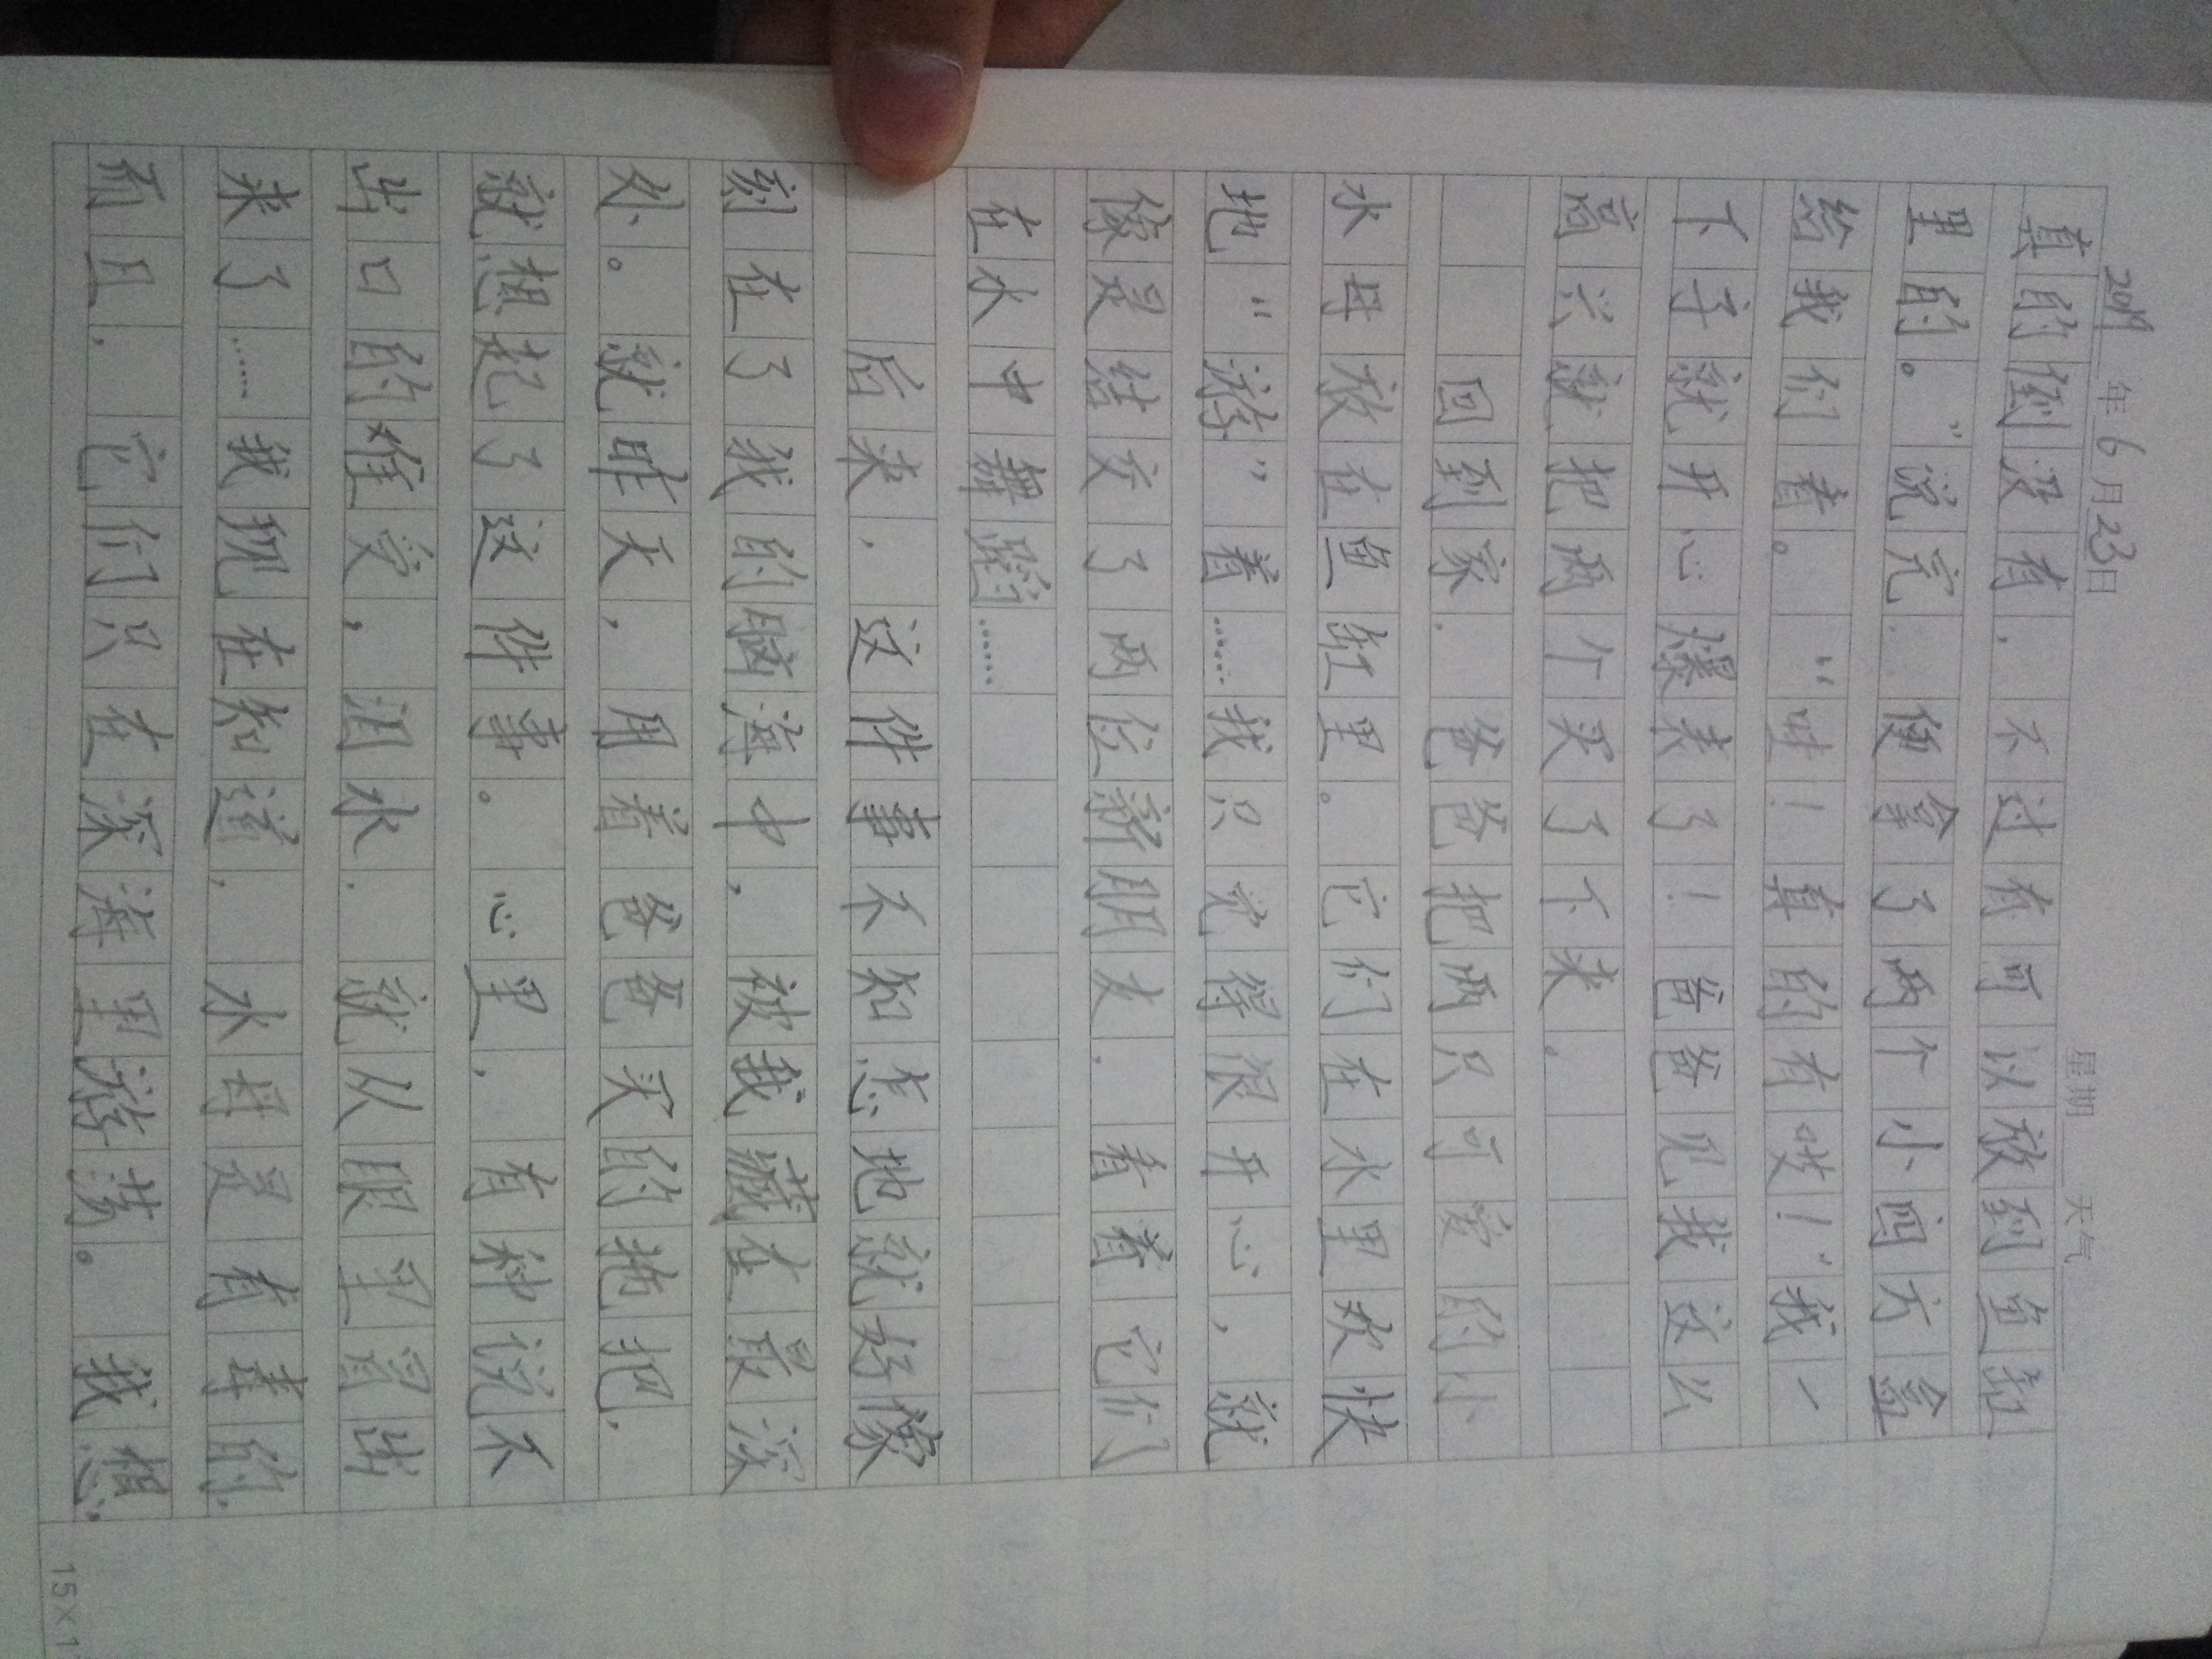 2019年6月23日 星期 天气
真的倒没有，不过有可以放到鱼缸
里的。”说完，便拿了两个小四方盒
给我们看。“哇！真的有哎！”我一
下子就开心爆表了！爸爸见我这么
高兴就把两个买了下来。
回到家，爸爸把两只可爱的小
水母放在鱼缸里。它们在水里欢快
地“游”着……我只觉得很开心，就
像是结交了两位新朋友，看着它们
在水中舞蹈……
后来，这件事不知怎地就好像
刻在了我的脑海中，被我藏在最深
处。就昨天，用着爸爸买的拖把，
就想起了这件事。心里，有种说不
出口的难受，泪水，就从眼里冒出
来了……我现在知道，水母是有毒的，
而且，它们只在深海里游荡。我想，
15×1